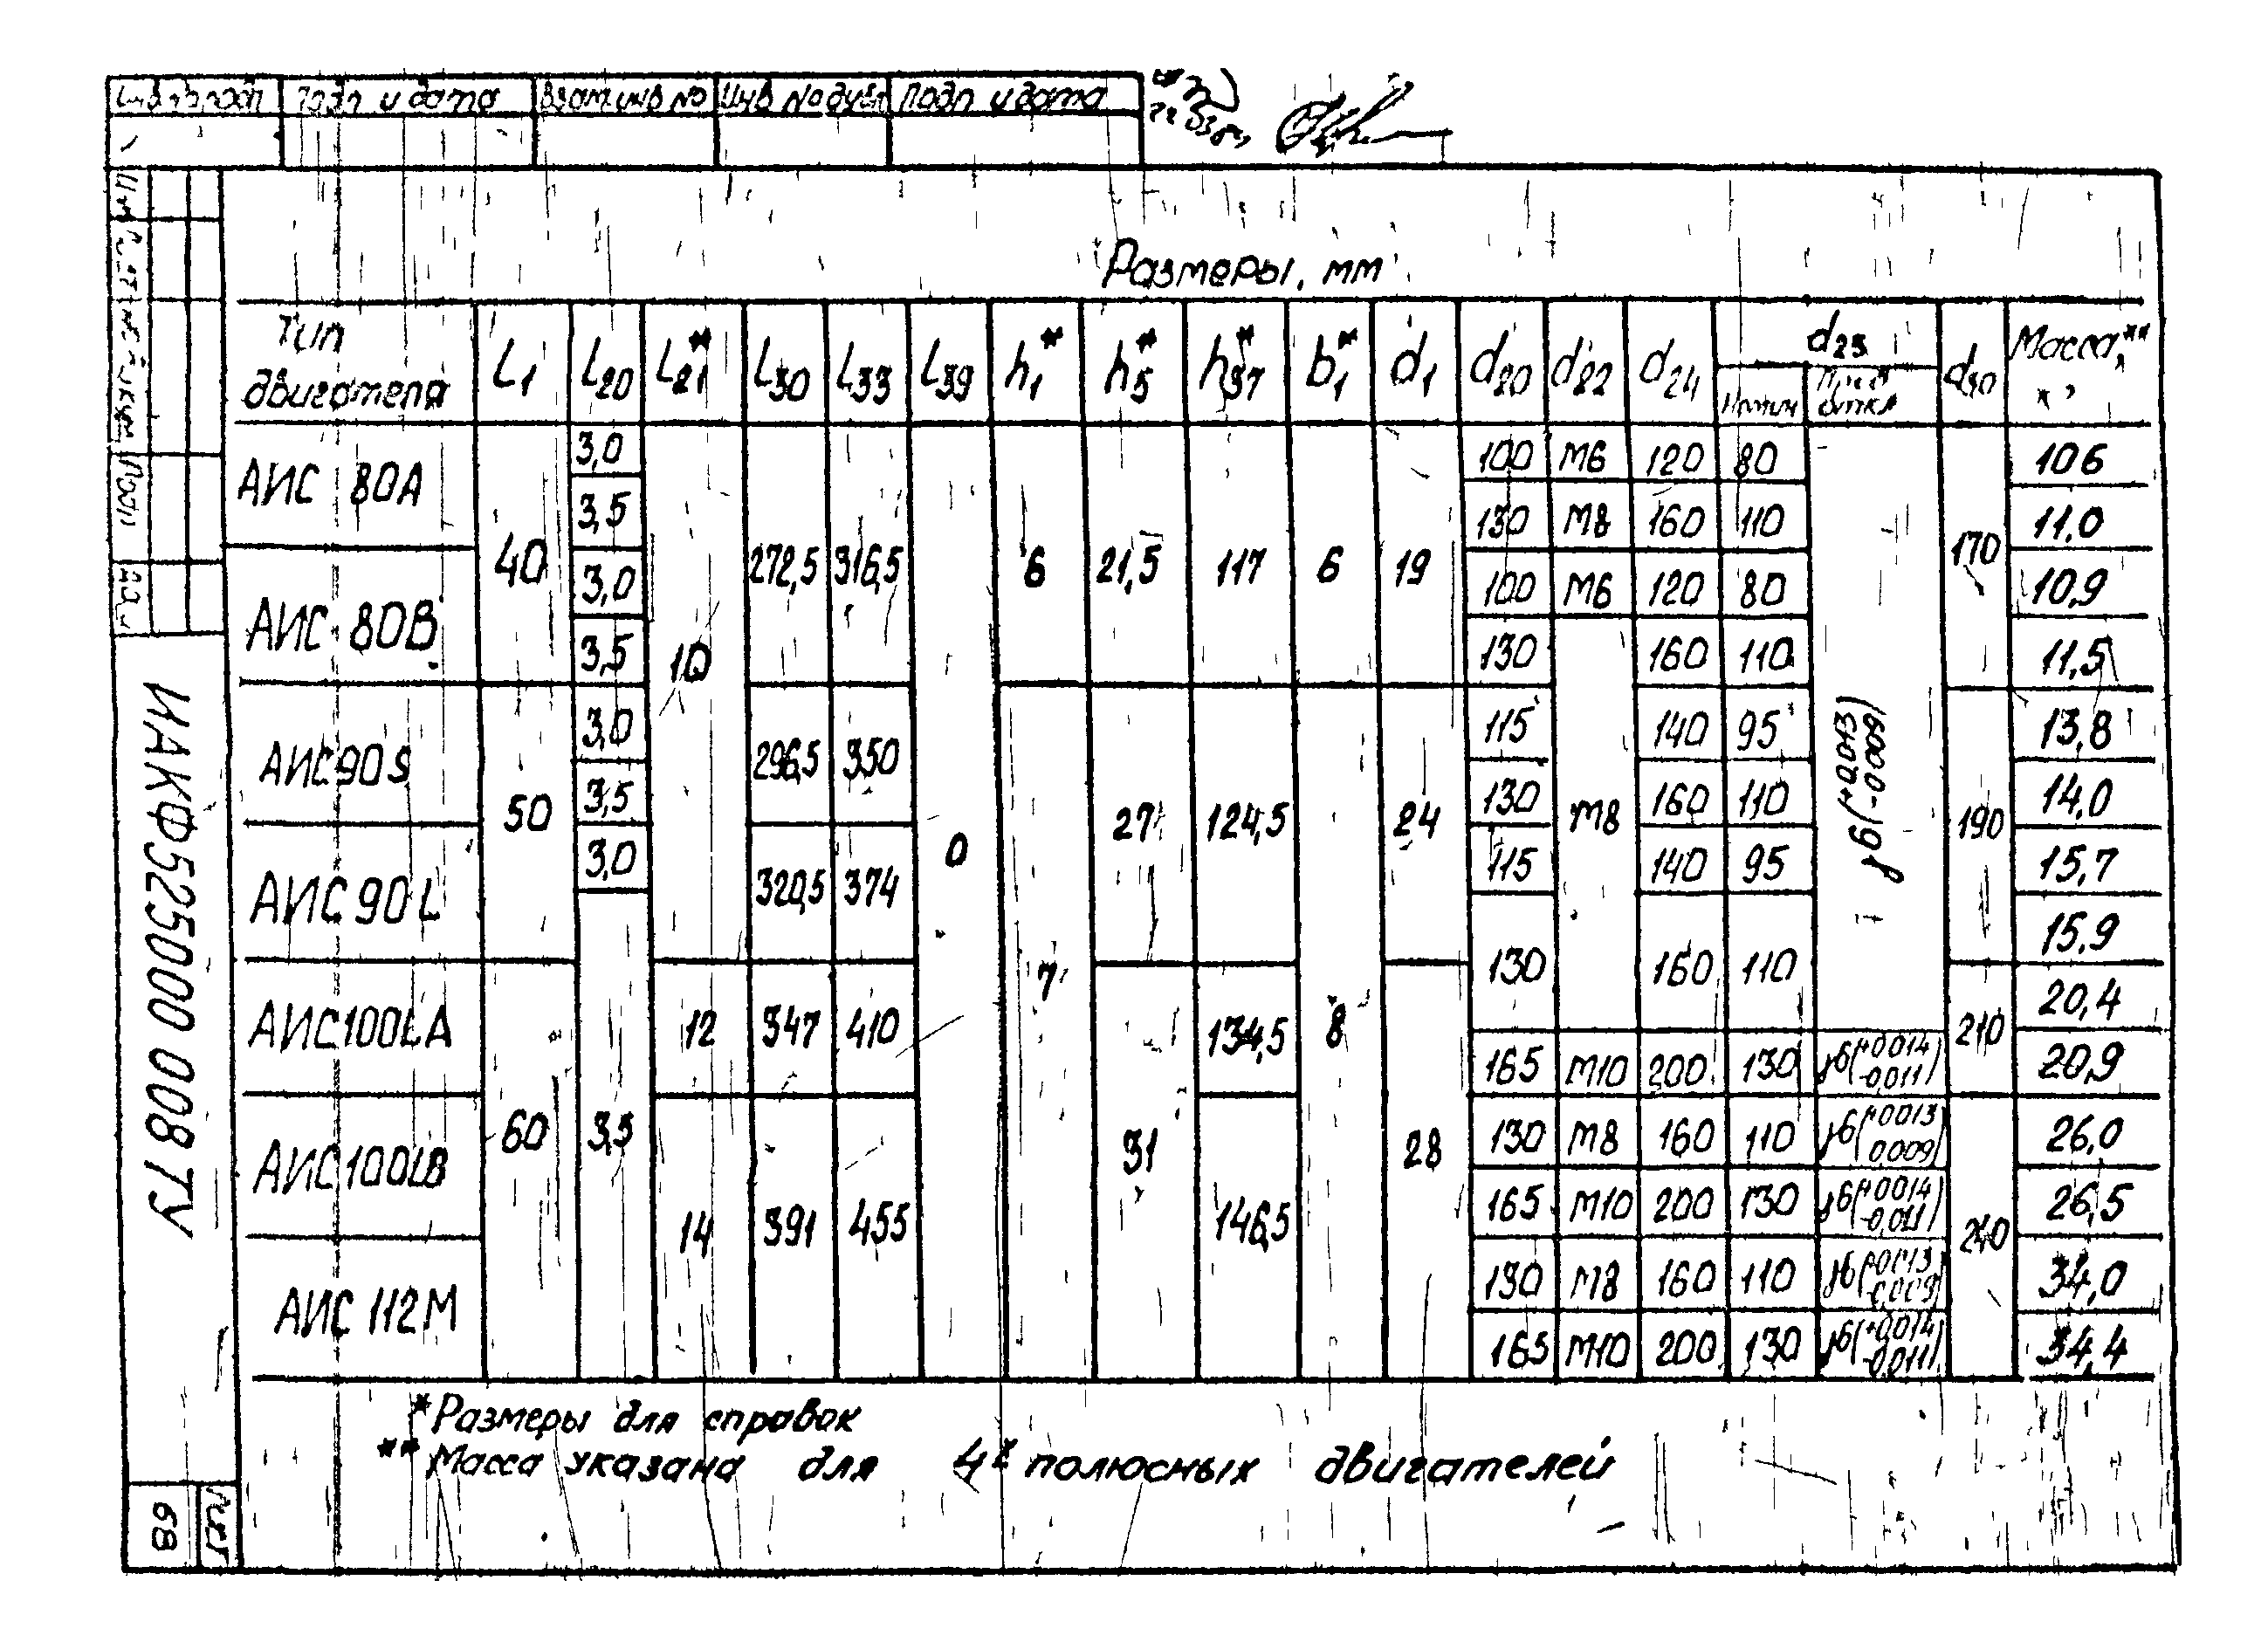 Подп и дата Взам.инв № Инв № дубл Подп и дата
Размеры, мм
Тип двигателя L1 L20 L21* L30 L33 L39 h1* h5* h37* b1* d1 d20 d22 d24 d25 d30 Масса,**
Номин
АИС 80А 40 3,0 10 272,5 316,5 0 6 21,5 117 6 19 100 М6 120 80 j6(+0,013 -0,009) 170 106
3,5 130 М8 160 110 11,0
АИС 80В 3,0 100 М6 120 80 10,9
3,5 130 М8 160 110 11,5
АИС90S 50 3,0 296,5 350 7 27 124,5 8 24 115 140 95 190 13,8
3,5 130 160 110 14,0
АИС90L 3,0 320,5 374 115 140 95 15,7
3,5 130 160 110 15,9
АИС100LA 60 12 347 410 31 134,5 28 210 20,4
165 М10 200 130 j6(+0014 -0,011) 20,9
АИС100LB 14 391 455 146,5 130 М8 160 110 j6(+0013 0,009) 240 26,0
165 М10 200 130 j6(+0014 -0,011) 26,5
АИС 112М 130 М8 160 110 j6(+0013 -0,009) 34,0
165 М10 200 130 j6(+0,014 -0,011) 34,4
*Размеры для справок
**Масса указана для 4х полюсных двигателей
ИАКФ525000 008 ТУ
Лист
68